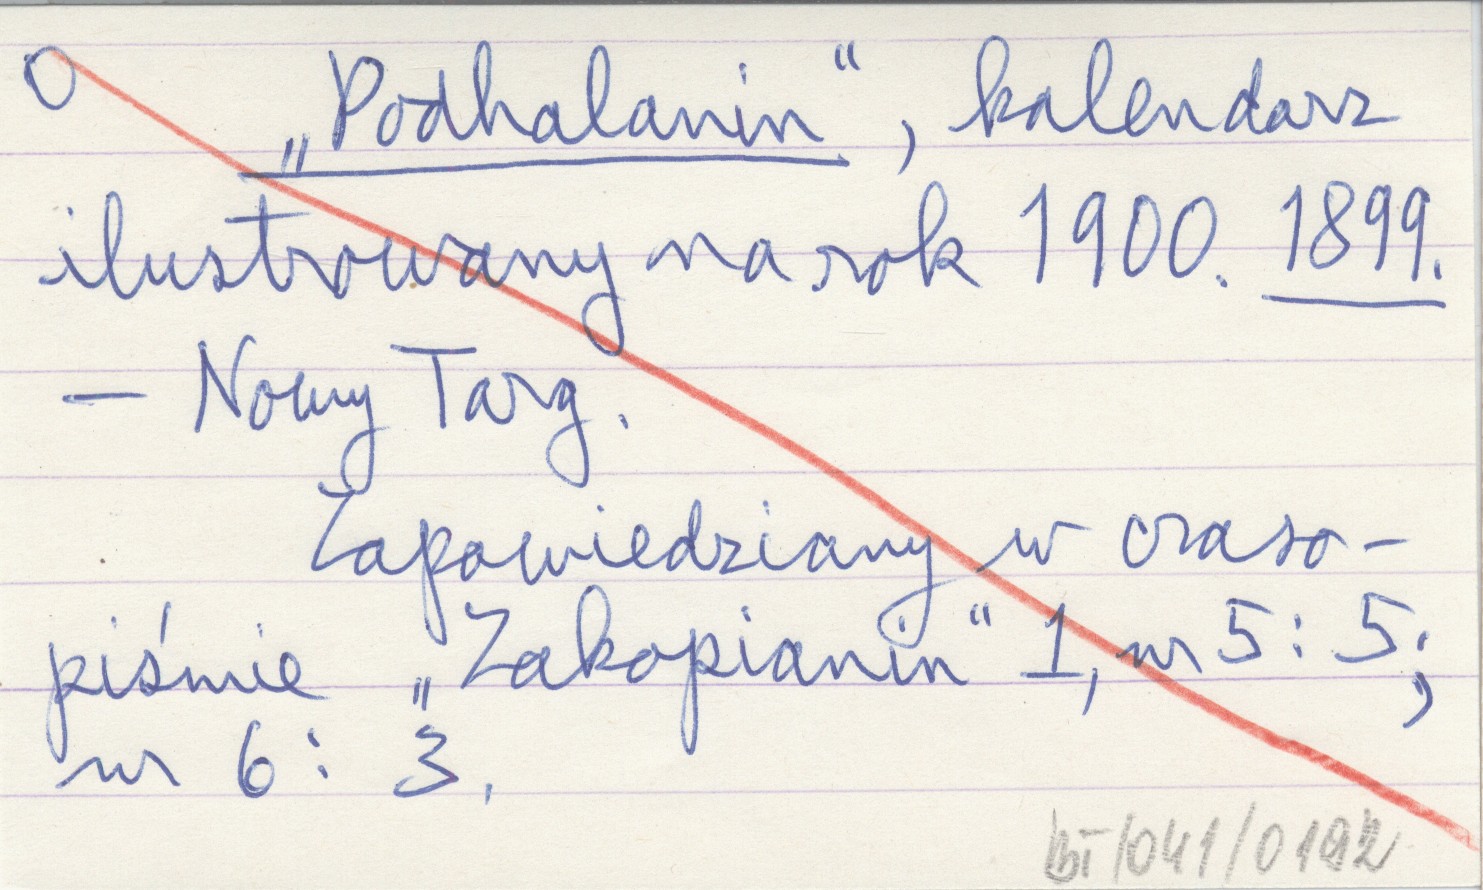 O „Podhalanin“, kalendarz
ilustrowany na rok 1900. 1899.
— Nowy Targ.
Zapowiedziany w czaso-
piśmie „Zakopianin“ 1, nr 5: 5;
nr 6: 3.
/041/0192